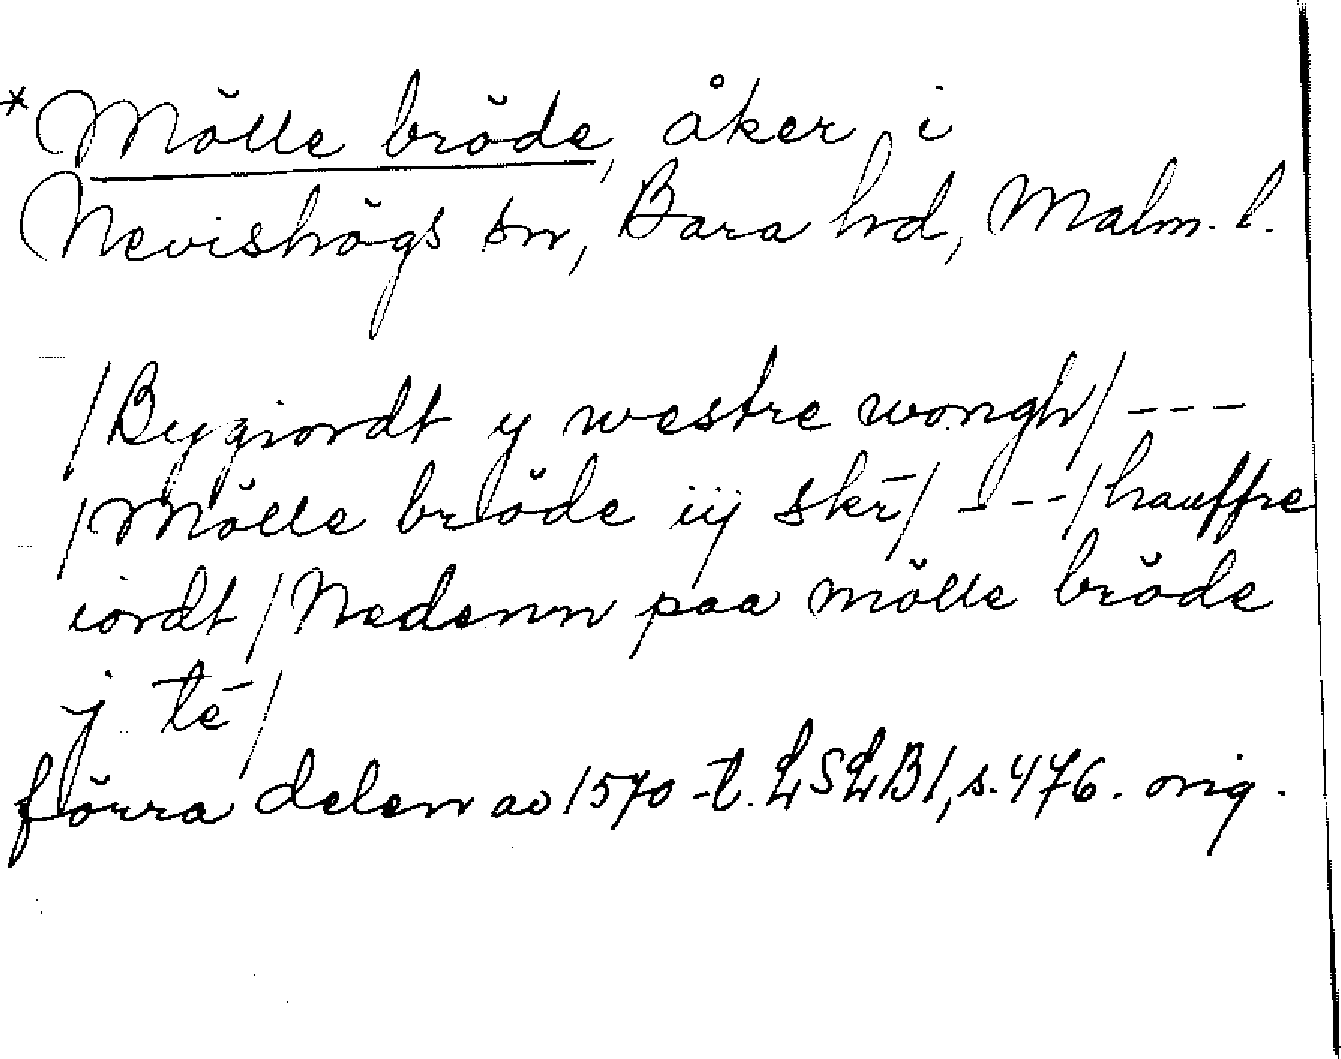 *Mölle bröde, åker i
Nevishögs sn, Bara hd, Malm. l.
/Bygiordt y westre wongh/ ---
/Mölle bröde iij skr̄/ ---/hauffre
iordt/Nedenn paa mölle bröde
j tē᷎/
förra delen av 1570-t. LSLB1, s. 476. orig.